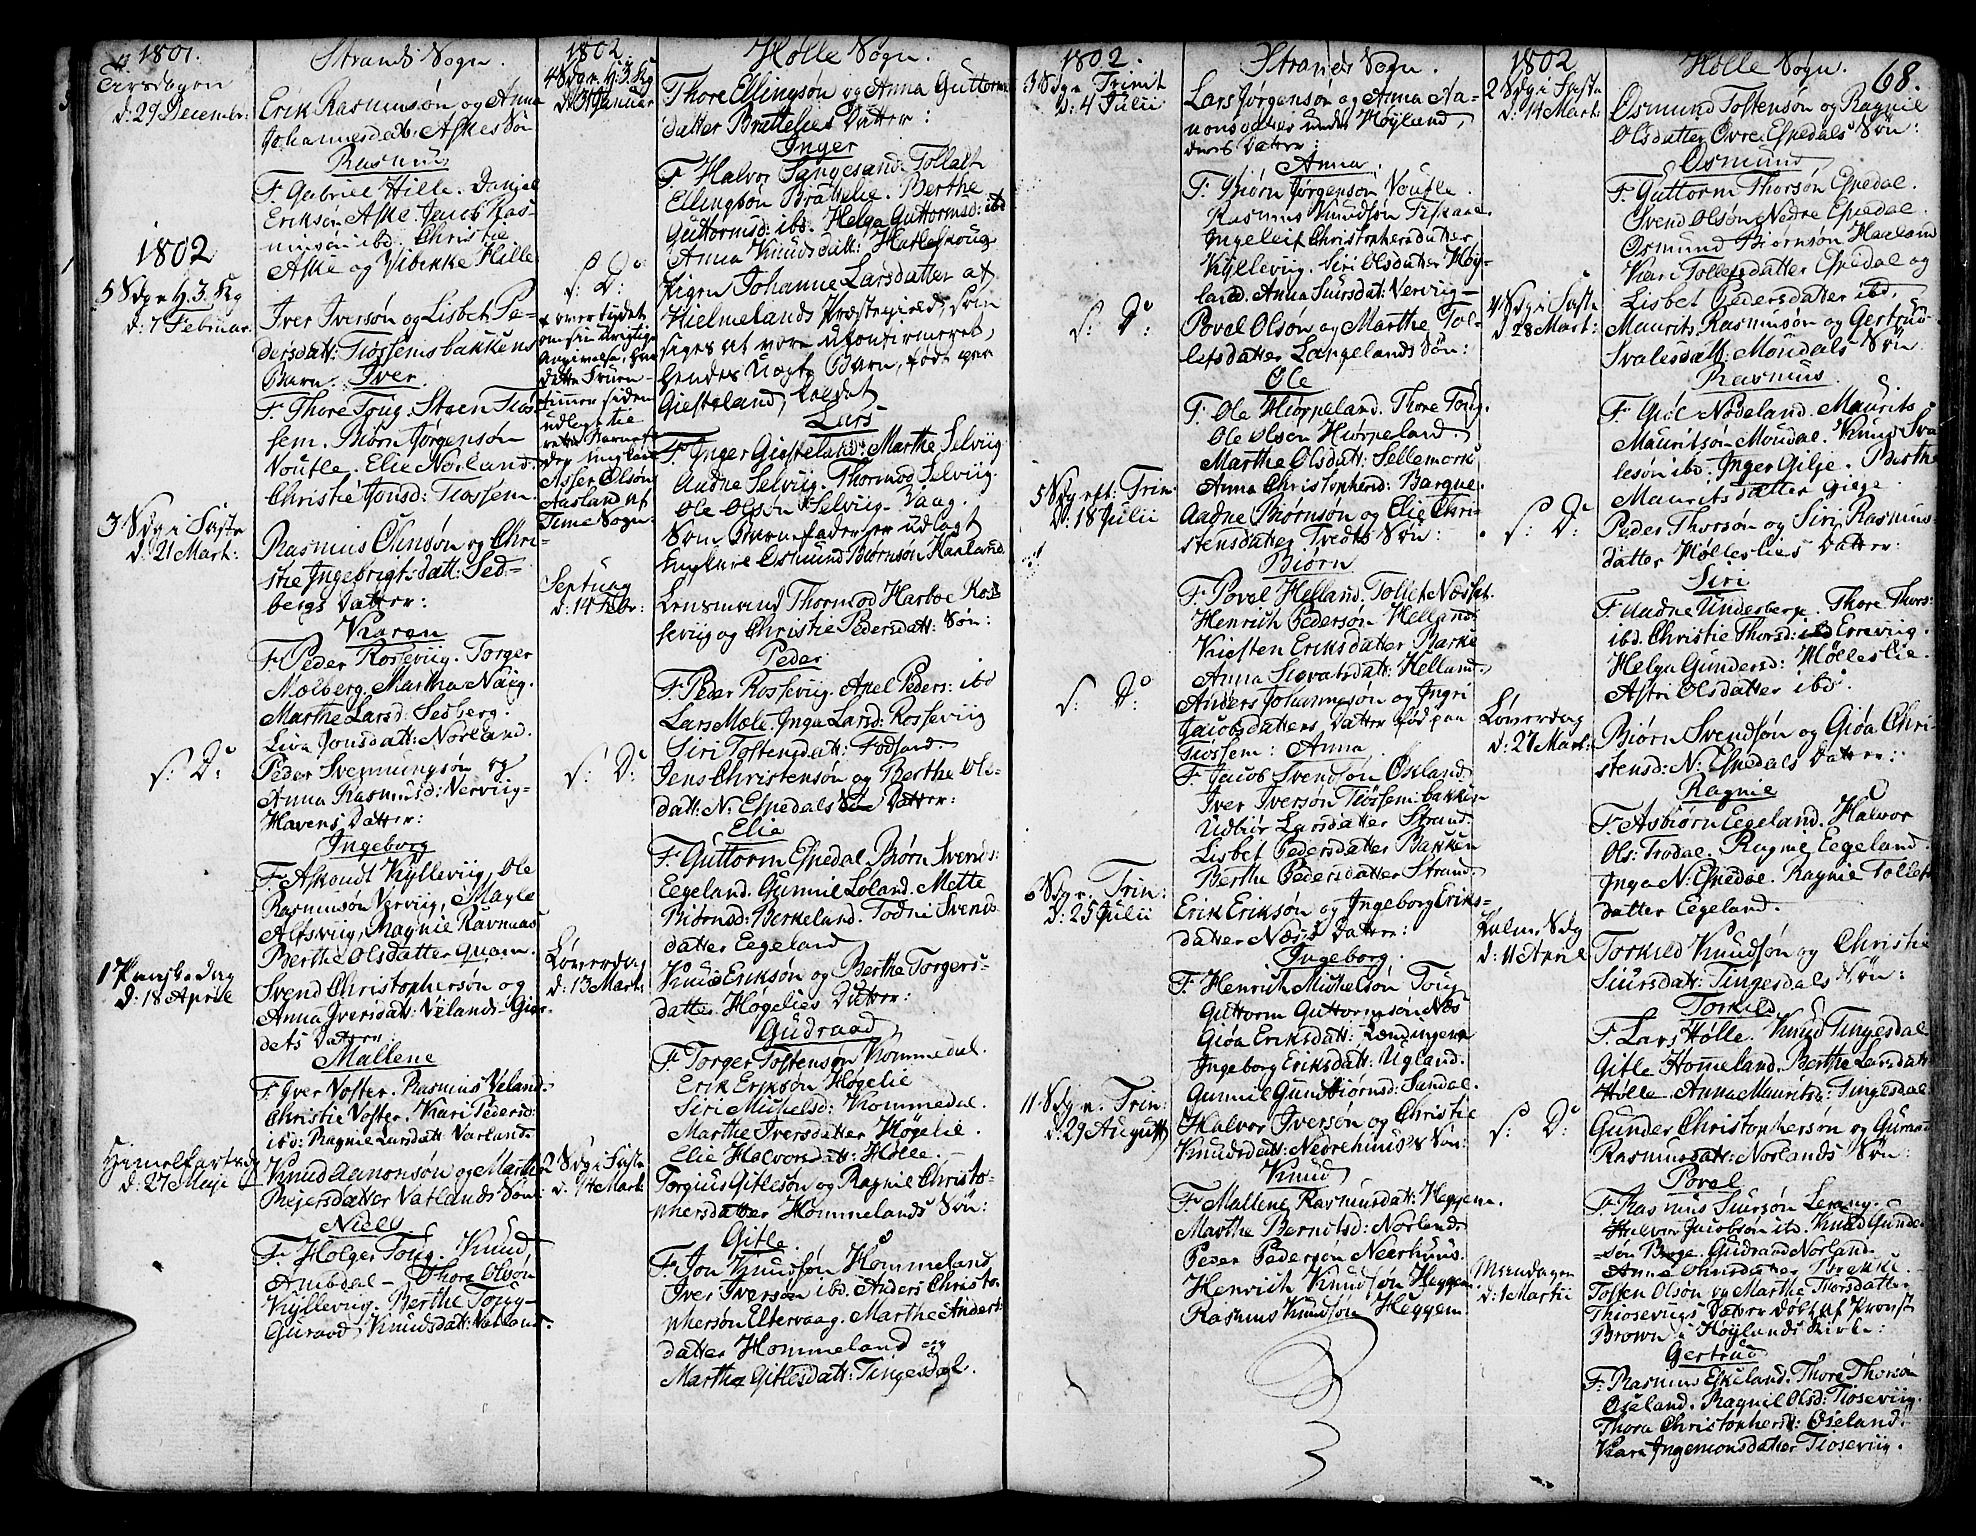 1801.
Strands Sogn.
d: 29 Decembr:
Erik Rasmusøn og Anna
Johannesdatt: Askes Søn
Rasmus
F. Gabriel Hille. Daniel
Eriksøn Aske. Jacob Ras-
musøn ibd. Christie
Aske og Vibekke Hille
1802
5 Sdg e. H. 3. Kg
d: 7 Februar.
Iver Iversøn og Lisbet Pe-
dersdatt: Tiøssems bakkens
Barn. Iver.
F. Thore Toug. Steen Tiøs-
sem. Biørn Jørgensøn
Voutle. Elie Norland.
Christie Jonsd: Tiøssem.
3 Sdg i Faste
d. 21 Mart:
Rasmus Olensøn og Chri-
stie Ingebrigtsdatt: Sed-
bergs Datter:
Karen
F. Peder Rosseviig. Torger
Molberg. Martha Näig.
Marthe Larsd: Sedberg.
Liva Jonsdatt: Norland.
S: D:
Peder Svennungsøn og
Anna Rasmusd: Nerviig-
Havens Datter:
Ingeborg
F. Askoudt Kylleviig, Ole
Rasmusøn Nerviig, Magle
Alfsviig, Ragnie Ravnaas
Berthe Olsdatter Quam.
1 Paaskedag
d: 18 Aprile
Svend Christophersøn og
Anna Iversdatt: Vélands-Gier-
dets Datter
Mallene
F. Iver Voster. Rasmus Veland.
Christie Voster. Kari Pedersd:
ibd: Ragnie Larsdatt: Varland.
Himelfartsdg
d: 27 Maije
Knud Aanonsøn og Marthe
Reijersdatter Vatlands Søn:
Niels
F. Holger Toug. Knud
Ambdal - Thore Olsøn
Kyllevig. Berthe Toug-
Guraad Knudsdatt: Vatland.
1802.
Hølle Sogn.
4 Sdg e. H. 3. Kg
d. 31 Januar
Thore Ellingsøn og Anna Guttorms
datter Brattelies Datter:
Inger
F. Halvor Langesand. Tollak
Ellingsøn Brattelie. Berthe
Guttormsd: ibd. Helga Guttormsd: ibd
Anna Knudsdatt: Harleshoug
S: D:
Pigen Johanne Larsdatter af
Hielmelands Præstegield, som
siges at være uconfirmeret,
hendes Uægte Barn, født paa
Giesteland, kaldet
Lars
overtydet
om sin urigtige
Angivelse, har
dette Fruen-
timmer siden
udlagt til
rette Barnefa-
der ungkarl
Asser Olsøn
Aasland af
Time Sogn:
F. Inger Giesteland. Marthe Selviig
Aadne Selviig. Thormod Selviig
Ole Olsøn Selviig - Vaag.
Som Barnefader er udlagt
Ungkarl Osmund Biørnsøn Haaland
Septuag
d: 14 Febr:
Lensmand Thormod Harboe Ros-
seviig og Christie Pedersdatt: Søn:
Peder
F. Peder Rosseviig. Axel Peders: ibd
Lars Mæle. Inga Larsd: Rosseviig
Siri Tostensdatt: Fosland.
S: D:
Jens Christensøn og Berthe Ols-
datt: N. Espedals Datter:
Elie
F. Guttorm Espedal. Biørn Svends:
Eegeland. Gunnil Løland. Mette
Biørnsd: Berkeland. Todni Svends
datter Eegeland
Løverdag
d: 13 Mart:
Knud Eriksøn og Berthe Torgers-
datter Høgelies Datter:
Gudraad
F. Torger Tostensøn Kommedal.
Erik Eriksøn Høgelie
Siri Michelsd: Kommedal.
Marthe Iversdatter Høgelie.
Elie Halvorsdatt: Hølle.
2 Sdg i Faste
d. 14 Mart:
Torgius Gitlesøn og Ragnie Christo-
phersdatter Hommelands Søn:
Gitle.
F. Jon Knudsøn Hommeland
Iver Iversøn ibd. Anders Christo-
phersøn Eltervaag. Marthe Anders-
datter Hommeland og
Marthe Gitlesdatt: Tingesdal.
1802.
Strands Sogn.
3 Sdg e. Trinit
d: 4 Julii
Lars Jørgensøn og Anna Aa-
nonsdatter under Høyland
deres Datter:
Anna
F. Biørn Jørgensøn Voutle.
Rasmus Knudsøn Fiskaae.
Ingeleif Christophersdatter
Kylleviig. Siri Olsdatter Høy-
land. Anna Suursdat: Nerviig-
S: D:
Povel Olsøn og Marthe Tol-
lefsdatter Langelands Søn:
Ole
F. Ole Hiørpeland. Thore Toug.
Ole Olsen Hiørpeland.
Marthe Olsdatt: Sellemork
Anna Christophersd: Barque.
5 Sdg eft. Trin.
D: 18 Julii
Aadne Biørnsøn og Elie Chri-
stensdatter Tvedts Søn:
Biørn
F. Povel Helland. Tollef Næsset.
Henrich Pedersøn Helland
Kirsten Eriksdatter Barke
Anna Siovatsdatt: Helland.
S: D:
Anders Johannesøn og Ingri
Jacobsdatters Datter fød paa
Tiøssem: Anna.
F. Jacob Svendsøn Oxland
Iver Iversøn Tiøssem: bakken
Udbiør Larsdatter Strand.
Lisbet Pedersdatter Bakken
Berthe Pedersdatter Strand.
6 Sdg e. Trin:
d: 25 Julii
Erik Eriksøn og Ingeborg Eriks-
datter Næss's Datter:
Ingeborg.
F. Henrich Michelsøn Toug
Guttorm Guttormsøn Næs
Gióa Eriksdatt: Lændingen
Ingeborg Eriksdatt: Ugland.
Gunnil Gundbiørnsd: Sandal.
11 Sdg e. Trin:
d: 29 Augusti
Halvor Iversøn og Christie
Knudsdatt: Nedrehuus's Søn:
Knud
F. Mallene Rasmusdatt: Heggem.
Marthe Berntsd: Norland
Peder Pedersen Neerhuus.
Henrich Knudsøn Heggem
Rasmus Knudsøn Heggem.
1802
Hølle Sogn.
68.
2 Sdg i Faste
d: 14 Mart:
Osmund Tostensøn og Ragnil
Olsdatter Øvre Espedals Søn:
Osmund
F. Guttorm Thorsøn Espedal.
Svend Olsøn Nedre Espedal.
Osmund Biørnsøn Haaland
Kari Tollefsdatter Espedal og
Lisbet Pedersdatter ibd.
4 Sdg i Faste
d: 28 Mart:
Maurits Rasmusøn og Gertrud
Svalesdatt: Moudals Søn.
Rasmus
F. Giøl Nodeland. Maurits
Mauritsøn Moudal. Knud Sva-
lesøn ibd. Inger Gilje. Berthe
Mauritsdatter Giege.
S: D:
Peder Thorsøn og Siri Rasmus-
datter Hølleslies Datter:
Siri
F. Aadne Underberge. Thore Thors:
ibd. Christie Thorsd: Erreviig.
Helga Gundersd: Hølleslie.
Astri Olsdatter ibd.
Løverdag
d: 27 Mart:
Biørn Svendsøn og Gióa Chri-
stensd: N: Espedals Datter:
Ragnie
F. Asbiørn Eegeland. Halvor
Ols: Trodal. Ragnie Eegeland.
Inga N: Espedal. Ragnie Tollefs
datter Eegeland.
Palme Sdg
d: 11 Aprile
Torkild Knudsøn og Christie
Siursdatt: Tingesdals Søn:
Torkild
F. Lars Hølle. Knud Tingesdal
Gitle Homeland. Berthe Larsdatt:
Hølle. Anna Mauritsd: Tingesdal
S: D:
Gunder Christophersøn og Guraad
Rasmusdatt: Norlands Søn:
Povel
F. Rasmus Suursøn Lerang.
Halvor Jacobsøn ibd. Knud Gunder-
søn Berge. Gudraad Norland
Anna Olensdatter Brekke.
Maendagen
d: 1 Martii
Tosten Olsøn og Marthe Thorsdatter
Thioseviigs Datter døbt af Provst
Brown i Høylands Kirke:
Gertrud
F. Rasmus Eskeland. Thore Thorsøn
Oseland. Ragnil Olsd: Tioseviig.
Thora Christophersd: Oseland.
Kari Ingemonsdatter Tioseviig.